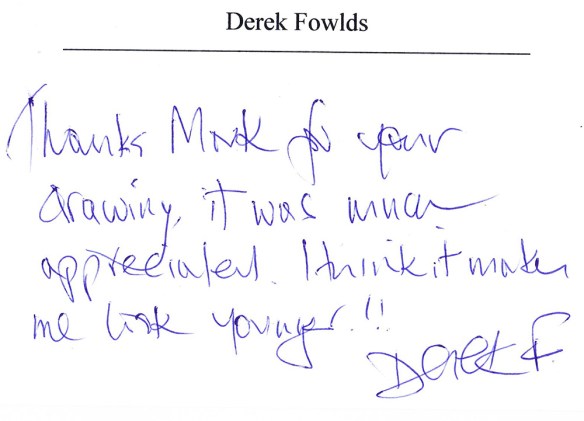 Derek Fowlds
Thanks Mark for your
drawing, it was much
appreciated. I think it makes
me look younger!!
Derek F.